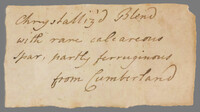 Chrystalliz'd Blend
with rare calcareous
Spar, partly ferruginous
from Cumberland